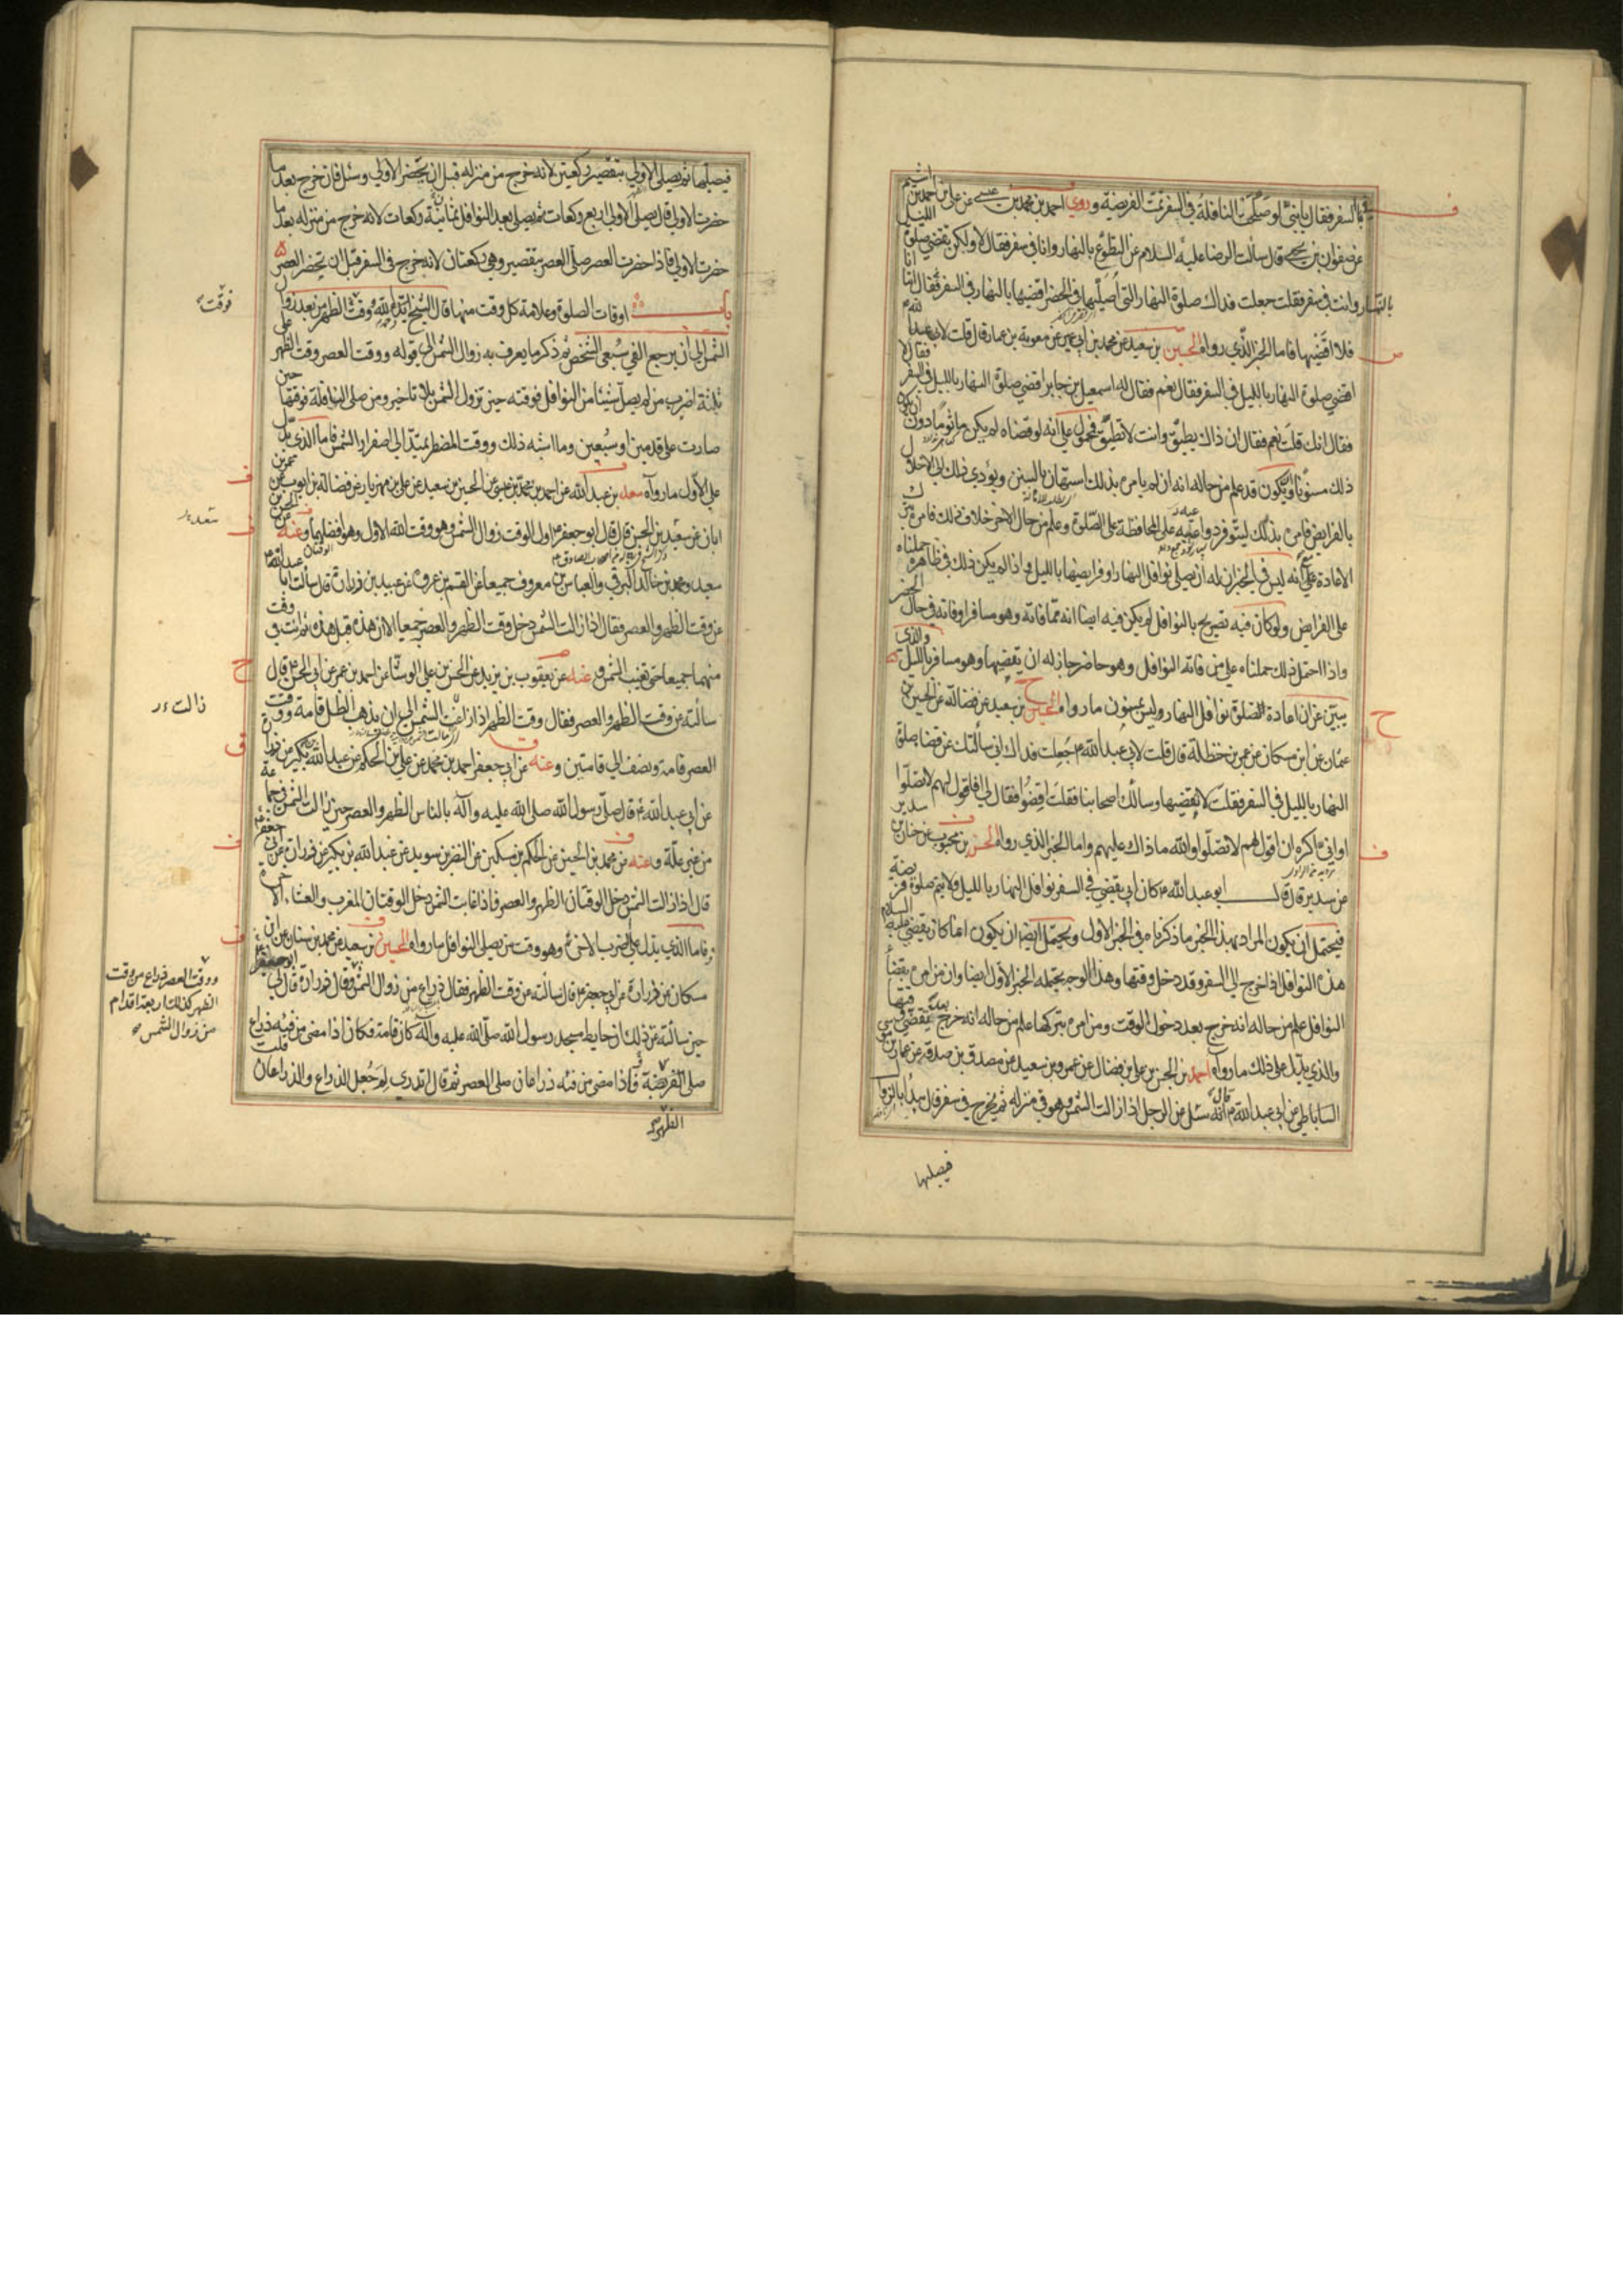 بالسفر فقال يا بنيّ لو صلحت النافلة في السفر تمت الفريضة وروي احمد بن محمد بن عيسى عن علي بن احمد بن اشيم
عن صفوان بن يحيى قال سالت الرضا عليه السلام عن التطوع بالنهار وانا في سفر فقال لا ولكن تقضي صلوة الليل
بالنهار وانت في سفر فقلت جعلت فداك صلوة النهار التي اصليها في الحضر اقضيها بالنهار في السفر فقال اما انا
فلا اقضيها فاما الخبر الذي رواه الحسين بن سعيد عن محمد بن ابي عمير عن معوية بن عمار قال قلت لابي عبد الله
اقضي صلوة النهار بالليل في السفر فقال نعم فقال له اسمعيل بن جابر اقضي صلوة النهار بالليل في السفر فقال لا
فقال انك قلت نعم فقال ان ذاك يطيق وانت لا تطيق فمحمول على انه لو قضاه لم يكن ماثوما دون ان يكون
ذلك مسنونا ويكون قد علم من حاله انه ان لم يامره بذلك استهان بالسنن ويؤدي ذلك الى الاخلال
بالفرايض فامره بذلك ليتوفر دواعيه على المحافظة على الصلوة وعلم من حال الاخر خلاف ذلك فامره بترك
الاعادة على انه ليس في الخبر ان له ان يصلي نوافل النهار او فرايضها بالليل واذا لم يكن ذلك في ظاهره حملناه
على الفرايض ولو كان فيه تصريح بالنوافل لم يكن فيه ايضا انه مما فاته وهو مسافر او فاته في حال الحضر
واذا احتمل ذلك حملناه على من فاته النوافل وهو حاضر جاز له ان يقضيها وهو مسافر بالليل والذي
يبين عن ان اعادة الصلوة نوافل النهار وليس بمسنون ما رواه الحسين بن سعيد عن فضالة عن الحسين بن
عثمان عن ابن مسكان عن عمر بن حنظلة قال قلت لابي عبد الله جعلت فداك اني سالتك عن قضا صلوة
النهار بالليل في السفر فقلت لا تقضيها وسالك اصحابنا فقلت اقضوا فقال لي افاقول لهم لا تصلوا
او اني اكره ان اقول لهم لا تصلوا والله ما ذاك عليهم واما الخبر الذي رواه الحسن بن محبوب عن حنان بن سدير
عن سدير قال قال ابو عبد الله كان ابي يقضي في السفر نوافل النهار بالليل ولا يتم صلوة فريضة
فيحتمل ان يكون المراد بهذا الخبر ما ذكرناه في الخبر الاول ويحتمل ايضا ان يكون انما كان يقضي عليه السلام
هذه النوافل اذا خرج الى السفر وقد دخل وقتها وهذا الوجه يحتمله الخبر الاول ايضا وان من امره بقضاء
النوافل علم من حاله انه خرج بعد دخول الوقت ومن امره بتركها علم من حاله انه خرج
والذي يدل على ذلك ما رواه احمد بن الحسن بن علي بن فضال عن عمرو بن سعيد عن مصدق بن صدقة عن عمار بن موسى
الساباطي عن ابي عبد الله قال انه سئل عن الرجل اذا زالت الشمس وهو في منزله ثم يخرج في سفر قال يبدا بالزوال
فيصليها
فيصليها ثم يصلي الاولى بتقصير ركعتين لانه خرج من منزله قبل ان تحضر الاولى وسئل فان خرج بعد ما
حضرت الاولى قال يصلي الاولى اربع ركعات ثم يصلي بعد النوافل ثمانية ركعات لانه خرج من منزله بعد ما
حضرت الاولى فاذا حضرت العصر صلى العصر بتقصير وهي ركعتان لانه خرج في السفر قبل ان تحضر العصر
باب اوقات الصلوة وعلامة كل وقت منها قال الشيخ ايده الله وقت الظهر من بعد زوال
الشمس الى ان يرجع الفي سبعي الشخص ثم ذكر ما يعرف به زوال الشمس الى قوله ووقت العصر وقت الظهر على
ثلثة اضرب من لم يصل شيئا من النوافل فوقته حين تزول الشمس بلا تاخير ومن صلى النافلة فوقتها حين
صارت على قدمين او سبعين وما اشبه ذلك ووقت المضطر يمتد الى اصفرار الشمس فاما الذي يدل
على الاول ما رواه سعد بن عبد الله عن احمد بن محمد بن عيسى عن الحسين بن سعيد عن علي بن مهزيار عن فضالة بن ايوب عن
ابان عن سعيد بن الحسن قال قال ابو جعفر اول الوقت زوال الشمس وهو وقت الله الاول وهو افضلهما وعنه
سعيد ومحمد بن خالد البرقي والعباس بن معروف جميعا عن القسم بن عروة عن عبيد بن زرارة قال سالت ابا عبد الله
عن وقت الظهر والعصر فقال اذا زالت الشمس دخل وقت الظهر والعصر جميعا الا ان هذه قبل هذه ثم انت في وقت
منهما جميعا حتى تغيب الشمس وعنه عن يعقوب بن يزيد عن الحسن بن علي الوشا عن احمد بن عمر عن ابي الحسن قال
سالته عن وقت الظهر والعصر فقال وقت الظهر اذا زاغت الشمس الى ان يذهب الظل قامة ووقت
العصر قامة ونصف الى قامتين وعنه عن ابي جعفر احمد بن محمد عن علي بن الحكم عن عبد الله بن بكير عن زرارة
عن ابي عبد الله قال صلى رسول الله صلى الله عليه وآله بالناس الظهر والعصر حين زالت الشمس في جماعة
من غير علة وعنه عن محمد بن الحسين عن الحكم بن مسكين عن النضر بن سويد عن عبد الله بن بكير عن زرارة عن ابي جعفر
قال اذا زالت الشمس دخل الوقتان الظهر والعصر فاذا غابت الشمس دخل الوقتان المغرب والعشاء الاخرة
فاما الذي يدل على الضرب الاخر وهو وقت من يصلي النوافل ما رواه الحسين بن سعيد عن محمد بن سنان عن ابن
مسكان عن زرارة عن ابي جعفر قال سالته عن وقت الظهر فقال ذراع من زوال الشمس وقال زرارة قال لي ابو جعفر
حين سالته عن ذلك ان حايط مسجد رسول الله صلى الله عليه وآله كان قامة فكان اذا مضى من فيئه ذراع
صلى الفريضة فاذا مضى من فيئه ذراعان صلى العصر ثم قال اتدري لم جعل الذراع والذراعان قلت
فوقت
سعد
زالت
ووقت العصر ذراع من وقت
الظهر كذلك اربعة اقدام
من زوال الشمس
الظهر